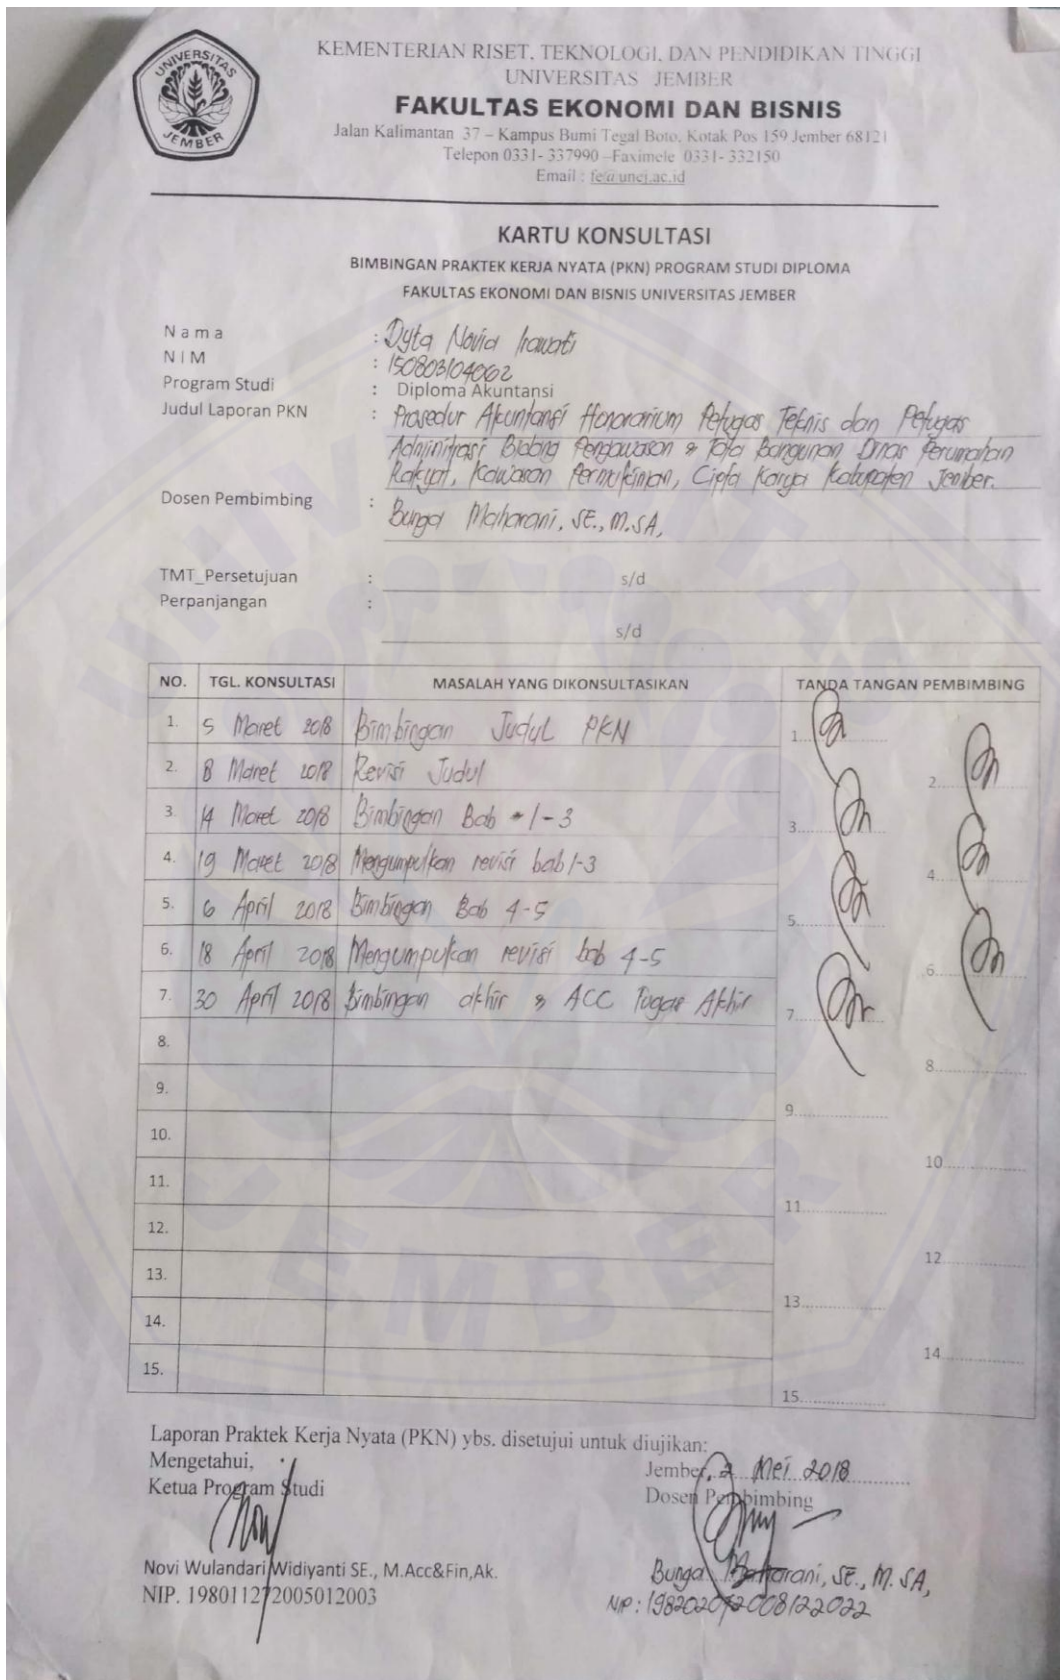 UNIVERSITAS
JEMBER
KEMENTERIAN RISET, TEKNOLOGI, DAN PENDIDIKAN TINGGI
UNIVERSITAS JEMBER
FAKULTAS EKONOMI DAN BISNIS
Jalan Kalimantan 37 – Kampus Bumi Tegal Boto, Kotak Pos 159 Jember 68121
Telepon 0331- 337990 –Faximele 0331- 332150
Email : fe@unej.ac.id
KARTU KONSULTASI
BIMBINGAN PRAKTEK KERJA NYATA (PKN) PROGRAM STUDI DIPLOMA
FAKULTAS EKONOMI DAN BISNIS UNIVERSITAS JEMBER
N a m a : Dyta Novia Irawati
N I M : 150803104062
Program Studi : Diploma Akuntansi
Judul Laporan PKN : Prosedur Akuntansi Honorarium Petugas Teknis dan Petugas
Administrasi Bidang Pengawasan & Tata Bangunan Dinas Perumahan
Rakyat, Kawasan Permukiman, Cipta Karya Kabupaten Jember.
Dosen Pembimbing : Bunga Maharani, SE., M.SA,
TMT_Persetujuan : s/d
Perpanjangan :
s/d
NO. TGL. KONSULTASI MASALAH YANG DIKONSULTASIKAN TANDA TANGAN PEMBIMBING
1. 5 Maret 2018 Bimbingan Judul PKN 1.
2. 8 Maret 2018 Revisi Judul 2.
3. 14 Maret 2018 Bimbingan Bab 1-3 3.
4. 19 Maret 2018 Mengumpulkan revisi bab 1-3 4.
5. 6 April 2018 Bimbingan Bab 4-5 5.
6. 18 April 2018 Mengumpulkan revisi bab 4-5 6.
7. 30 April 2018 Bimbingan akhir & ACC Tugas Akhir 7.
8. 8.
9. 9.
10. 10.
11. 11.
12. 12.
13. 13.
14. 14.
15. 15.
Laporan Praktek Kerja Nyata (PKN) ybs. disetujui untuk diujikan:
Mengetahui,
Ketua Program Studi
Novi Wulandari Widiyanti SE., M.Acc&Fin,Ak.
NIP. 198011272005012003
Jember, 2 Mei 2018
Dosen Pembimbing
Bunga Maharani, SE., M.SA,
NIP :